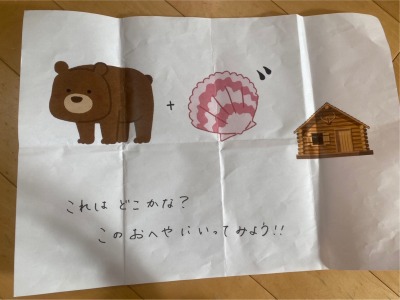 + 〃
これは どこかな?
このおへやにいってみよう!!